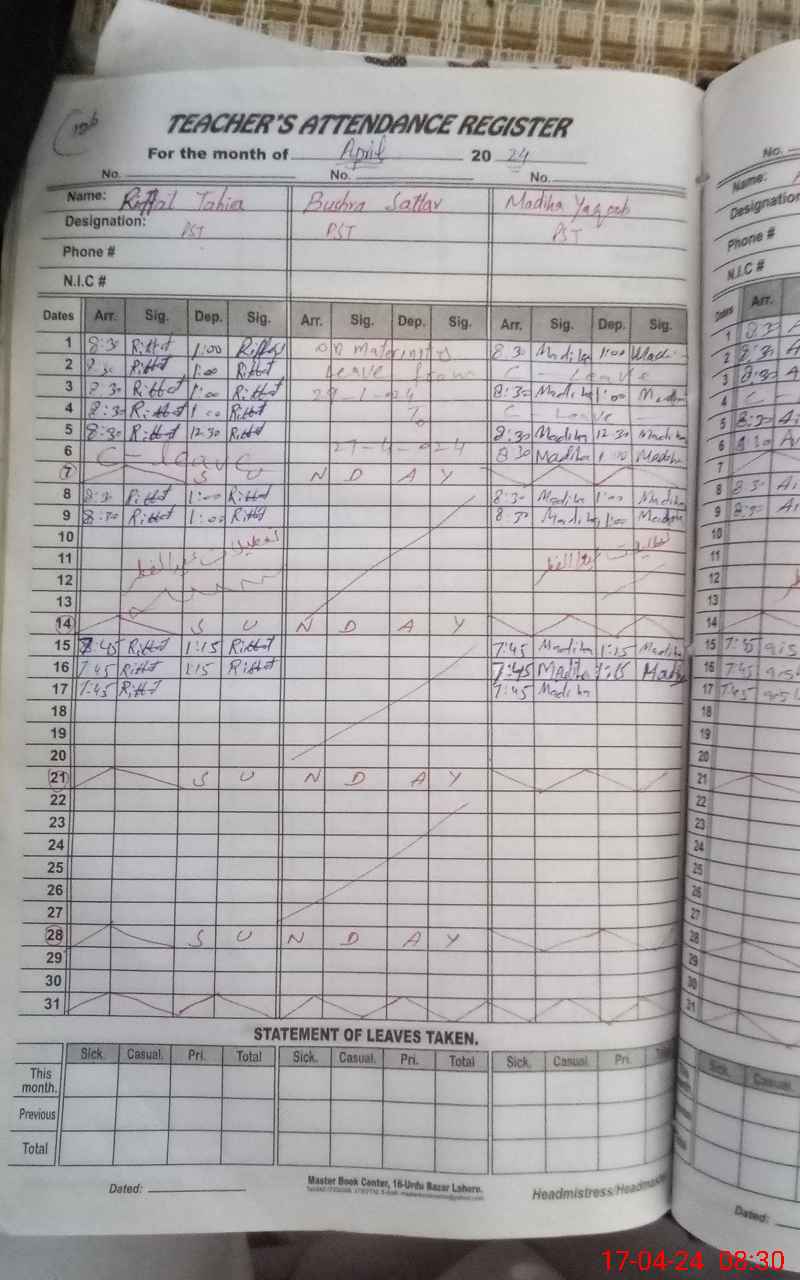 TEACHER'S ATTENDANCE REGISTER
For the month of April 20 24
No. No. No.
Name: Riffat Tahira Bushra Sattar Madiha Yaqoob
Designation: PST PST PST
Phone #
N.I.C #
Dates Arr. Sig. Dep. Sig. Arr. Sig. Dep. Sig. Arr. Sig. Dep. Sig.
1 8:30 Riffat 1:00 Riffat on maternity 8:30 Madiha 1:00 Madi
2 8:30 Riffat 1:00 Riffat Leave from C - Leave
3 8:30 Riffat 1:00 Riffat 8:30 Madiha 1:00 Madiha
4 8:30 Riffat 1:00 Riffat To C - Leave
5 8:30 Riffat 12:30 Riffat 8:30 Madiha 12:30 Madiha
6 C - leave 27-4-024 8:30 Madiha 1:00 Madiha
7 S U N D A Y
8 8:30 Riffat 1:00 Riffat 8:30 Madiha 1:00 Madiha
9 8:30 Riffat 1:00 Riffat 8:30 Madiha 1:00 Madiha
10
11 تعطیلات عید الفطر تعطیلات عید الفطر
12
13
14 S U N D A Y
15 7:45 Riffat 1:15 Riffat 7:45 Madiha 1:15 Madiha
16 7:45 Riffat 1:15 Riffat 7:45 Madiha 1:15 Madiha
17 7:45 Riffat 7:45 Madiha
18
19
20
21 S U N D A Y
22
23
24
25
26
27
28 S U N D A Y
29
30
31
STATEMENT OF LEAVES TAKEN.
Sick. Casual. Pri. Total Sick. Casual. Pri. Total Sick. Casual. Pri.
This month.
Previous
Total
Dated:
Master Book Center, 16-Urdu Bazar Lahore.
Headmistress/Headmaster
No.
Name:
Designation
Phone #
N.I.C #
Dates Arr.
1 8:30
2 8:30
3 8:30
4 C -
5 8:30
6 8:30
7
8 8:30
9 8:30
10
11
12
13
14
15 7:45
16 7:45
17 7:45
18
19
20
21
22
23
24
25
26
27
28
29
30
31
Sick. Casual.
Dated:
17-04-24 08:30